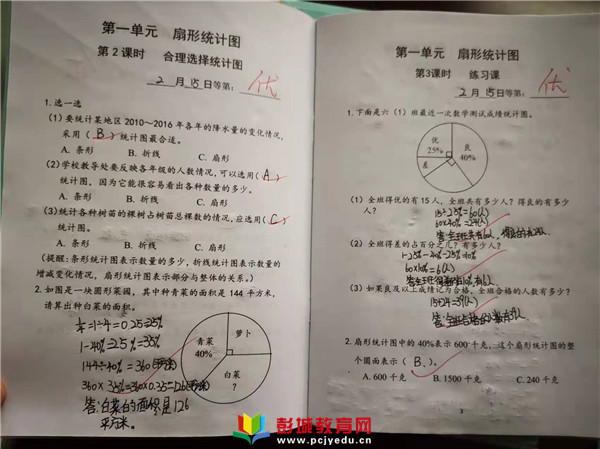 第一单元 扇形统计图
第2课时 合理选择统计图
2月15日等第: 优
1.选一选
(1)要统计某地区2010~2016年各年的降水量的变化情况,
采用( B )统计图最合适。
A. 条形 B. 折线 C. 扇形
(2)学校教导处要反映各年级的人数情况,可以选用( A )
统计图,因为它能很容易看出各种数量的多少。
A. 条形 B. 折线 C. 扇形
(3)统计各种树苗的棵树占树苗总棵数的情况,应选用( C )
统计图。
A. 条形 B. 折线 C. 扇形
(提醒:条形统计图表示数量的多少,折线统计图表示数量的
增减变化情况,扇形统计图表示部分与整体的关系。)
2.如图是一块圆形菜园,其中种青菜的面积是144平方米,
请算出种白菜的面积。
¼=1÷4=0.25=25%
1-40%-25%=35%
144÷40%=360(平方米)
360×35%=360×0.35=126(平方米)
答:白菜的面积是126
平方米。
萝卜
青菜
40%
白菜
?
第一单元 扇形统计图
第3课时 练习课
2月15日等第: 优
1.下面是六(1)班最近一次数学测试成绩统计图。
优
25%
良
40%
差
(1)全班得优的有15人,全班共有多少人?得良的有多少
人?
15÷25%=60(人)
60×40%=24(人)
(2)全班得差的占百分之几?有多少人?
60×10%=6(人)
(3)如果良及以上成绩记为合格,全班合格的人数有多少?
15+24=39(人)
2.扇形统计图中的40%表示600千克,这个扇形统计图的整
个圆面表示( B )。
A. 600千克 B. 1500千克 C. 240千克
3
彭城教育网
www.pcjyedu.cn